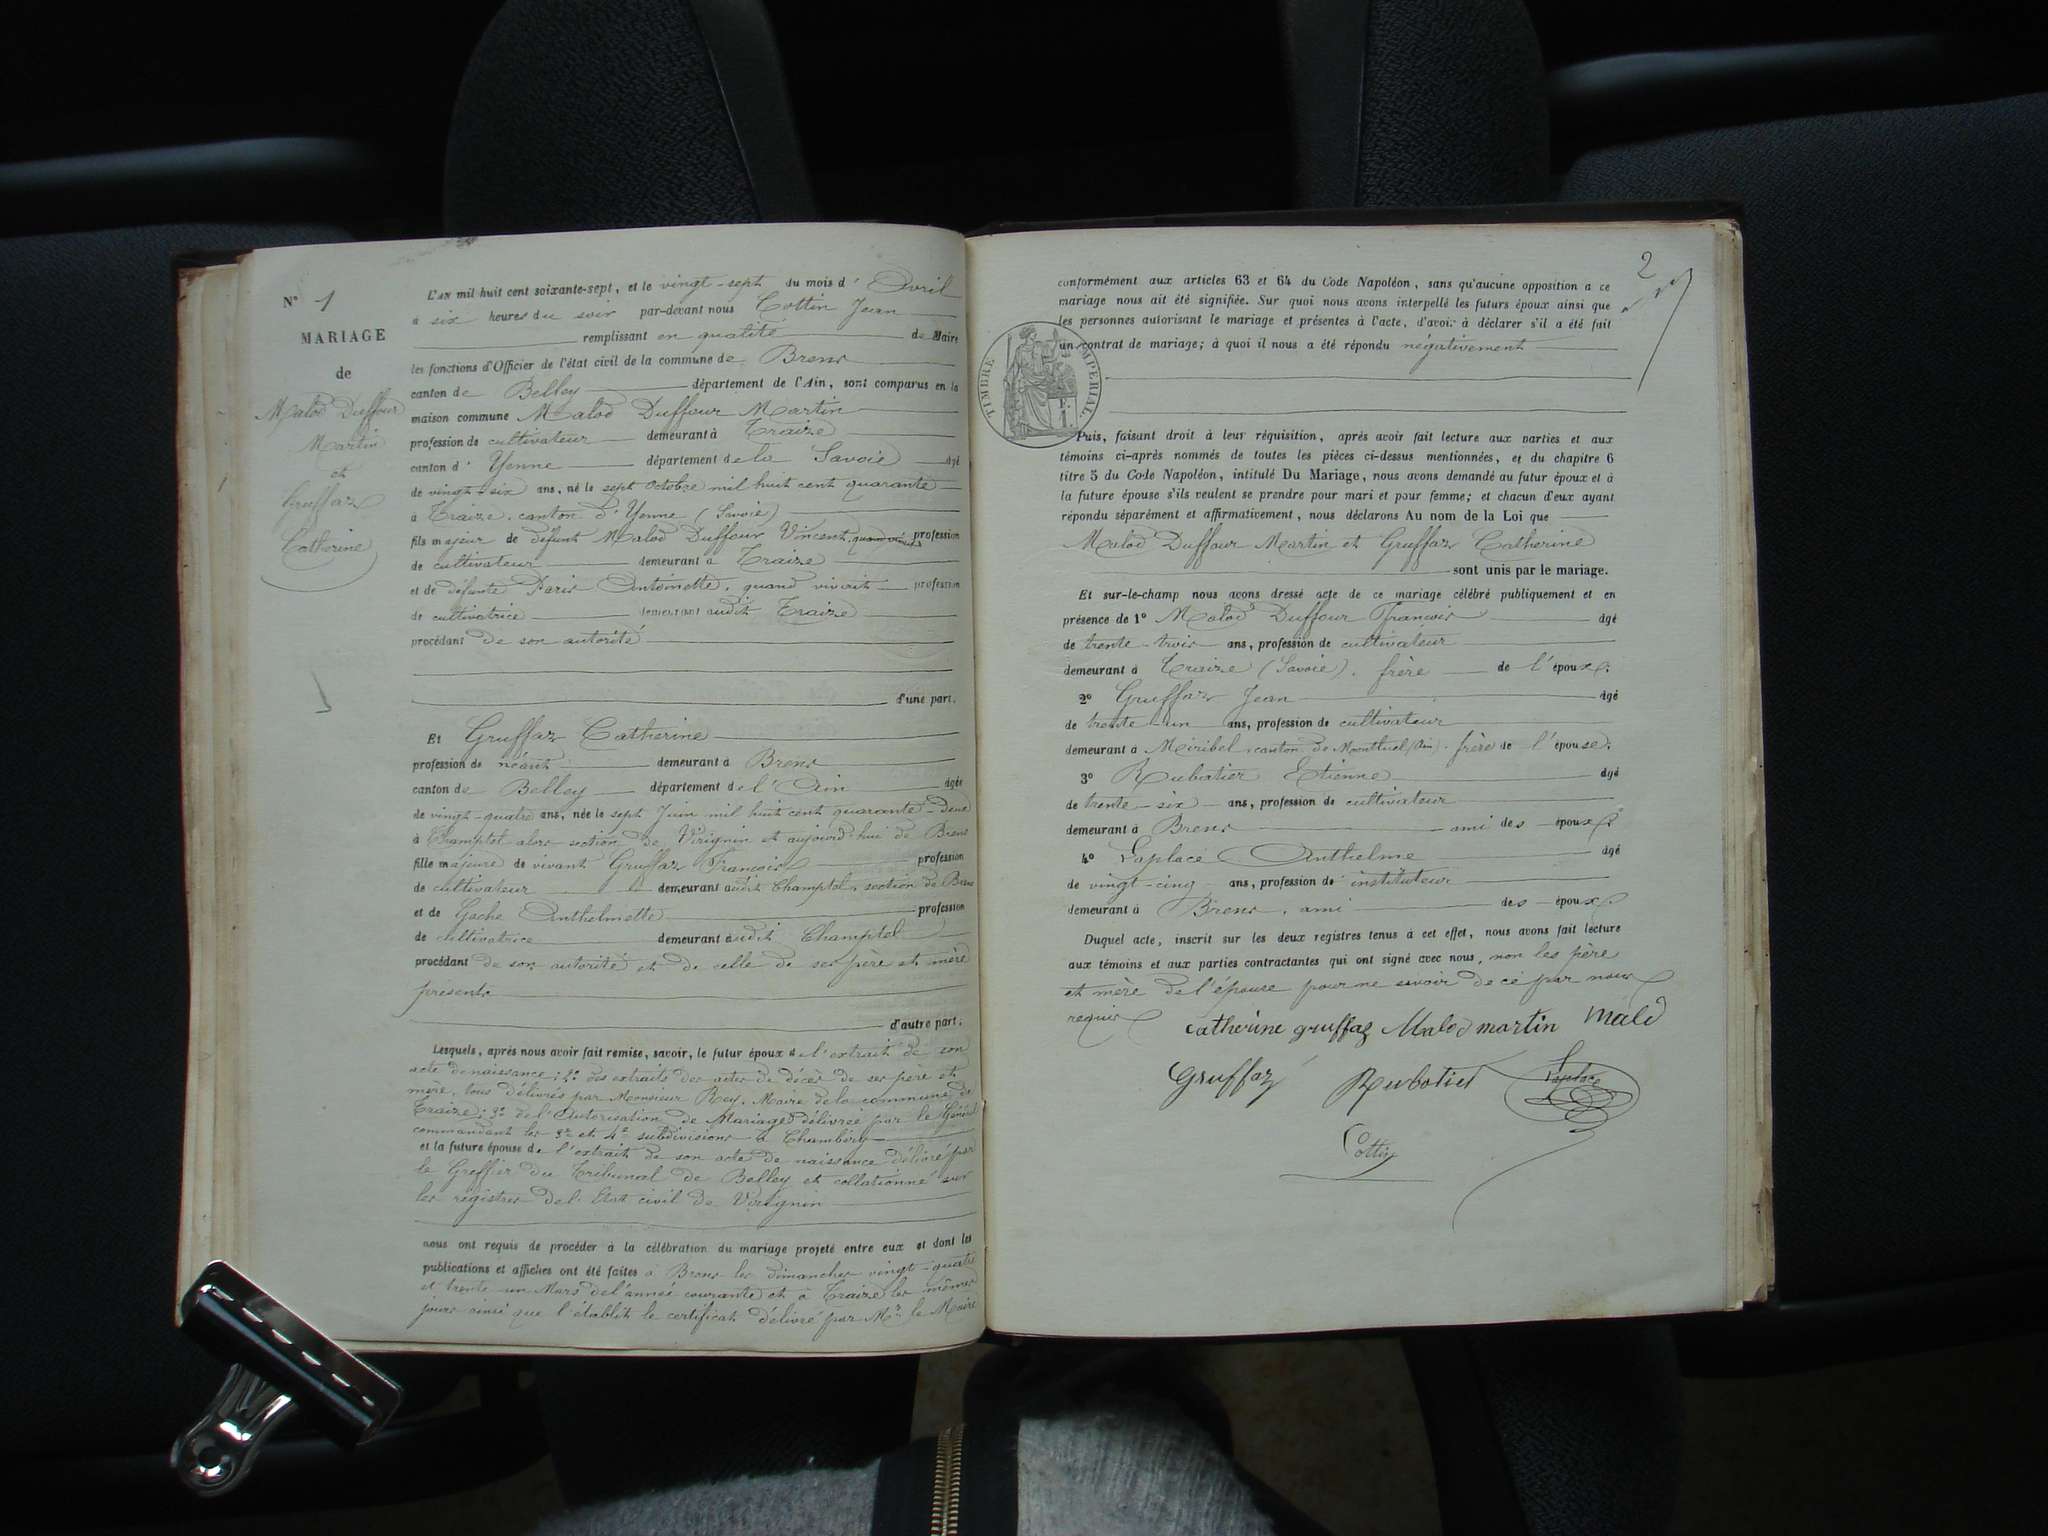 N° 1
MARIAGE
de
Malod Duffour
Martin
et
Gruffaz
Catherine
L'AN mil huit cent soixante-sept, et le vingt-sept du mois d' Avril
à six heures du soir par-devant nous Cottin Jean
remplissant en qualité de Maire
les fonctions d'Officier de l'état civil de la commune de Brens
canton de Belley département de l'Ain, sont comparus en la
maison commune Malod Duffour Martin
profession de cultivateur demeurant à Traize
canton d' Yenne département de la Savoie âgé
de vingt-six ans, né le sept Octobre mil huit cent quarante
à Traize, canton d'Yenne (Savoie)
fils majeur de défunt Malod Duffour Vincent, quand vivait profession
de cultivateur demeurant à Traize
et de défunte Paris Antoinette, quand vivait profession
de cultivatrice demeurant audit Traize
procédant de son autorité
d'une part.
Et Gruffaz Catherine
profession de néant demeurant à Brens
canton de Belley département de l'Ain âgée
de vingt-quatre ans, née le sept Juin mil huit cent quarante-deux
à Champtel alors section de Virignin et aujourd'hui de Brens
fille majeure de vivant Gruffaz François profession
de cultivateur demeurant audit Champtel, section de Brens
et de Gache Anthelmette profession
de cultivatrice demeurant audit Champtel
procédant de son autorité et de celle de ses père et mère
présents
d'autre part.
Lesquels, après nous avoir fait remise, savoir, le futur époux de l'extrait de son
acte de naissance; 2° des extraits des actes de décès de ses père et
mère, tous délivrés par Monsieur Rey, Maire de la commune de
Traize; 3° de l'Autorisation de Mariage délivrée par le Général
commandant les 3e et 4e subdivisions à Chambéry
et la future épouse de l'extrait de son acte de naissance délivré par
le Greffier du Tribunal de Belley et collationné sur
les registres de l'Etat civil de Virignin
nous ont requis de procéder à la célébration du mariage projeté entre eux et dont les
publications et affiches ont été faites à Brens les dimanches vingt-quatre
et trente un Mars de l'année courante et à Traize les mêmes
jours ainsi que l'établit le certificat délivré par Mr. le Maire
2
conformément aux articles 63 et 64 du Code Napoléon, sans qu'aucune opposition a ce
mariage nous ait été signifiée. Sur quoi nous avons interpellé les futurs époux ainsi que
les personnes autorisant le mariage et présentes à l'acte, d'avoir à déclarer s'il a été fait
un contrat de mariage; à quoi il nous a été répondu négativement
TIMBRE IMPERIAL
F.
1.
Puis, faisant droit à leur réquisition, après avoir fait lecture aux parties et aux
témoins ci-après nommés de toutes les pièces ci-dessus mentionnées, et du chapitre 6
titre 5 du Code Napoléon, intitulé Du Mariage, nous avons demandé au futur époux et à
la future épouse s'ils veulent se prendre pour mari et pour femme; et chacun d'eux ayant
répondu séparément et affirmativement, nous déclarons Au nom de la Loi que
Malod Duffour Martin et Gruffaz Catherine
sont unis par le mariage.
Et sur-le-champ nous avons dressé acte de ce mariage célébré publiquement et en
présence de 1° Malod Duffour François âgé
de trente-trois ans, profession de cultivateur
demeurant à Traize (Savoie), frère de l'époux;
2° Gruffaz Jean âgé
de trente-un ans, profession de cultivateur
demeurant à Miribel, canton de Montluel (Ain), frère de l'épouse;
3° Rubatier Etienne âgé
de trente-six ans, profession de cultivateur
demeurant à Brens ami des époux;
4° Laplace Anthelme âgé
de vingt-cinq ans, profession de instituteur
demeurant à Brens, ami des époux
Duquel acte, inscrit sur les deux registres tenus à cet effet, nous avons fait lecture
aux témoins et aux parties contractantes qui ont signé avec nous, non les père
et mère de l'épouse pour ne savoir de ce par nous
requis
Catherine gruffaz Malod martin Malod
Gruffaz Rubatier Laplace
Cottin